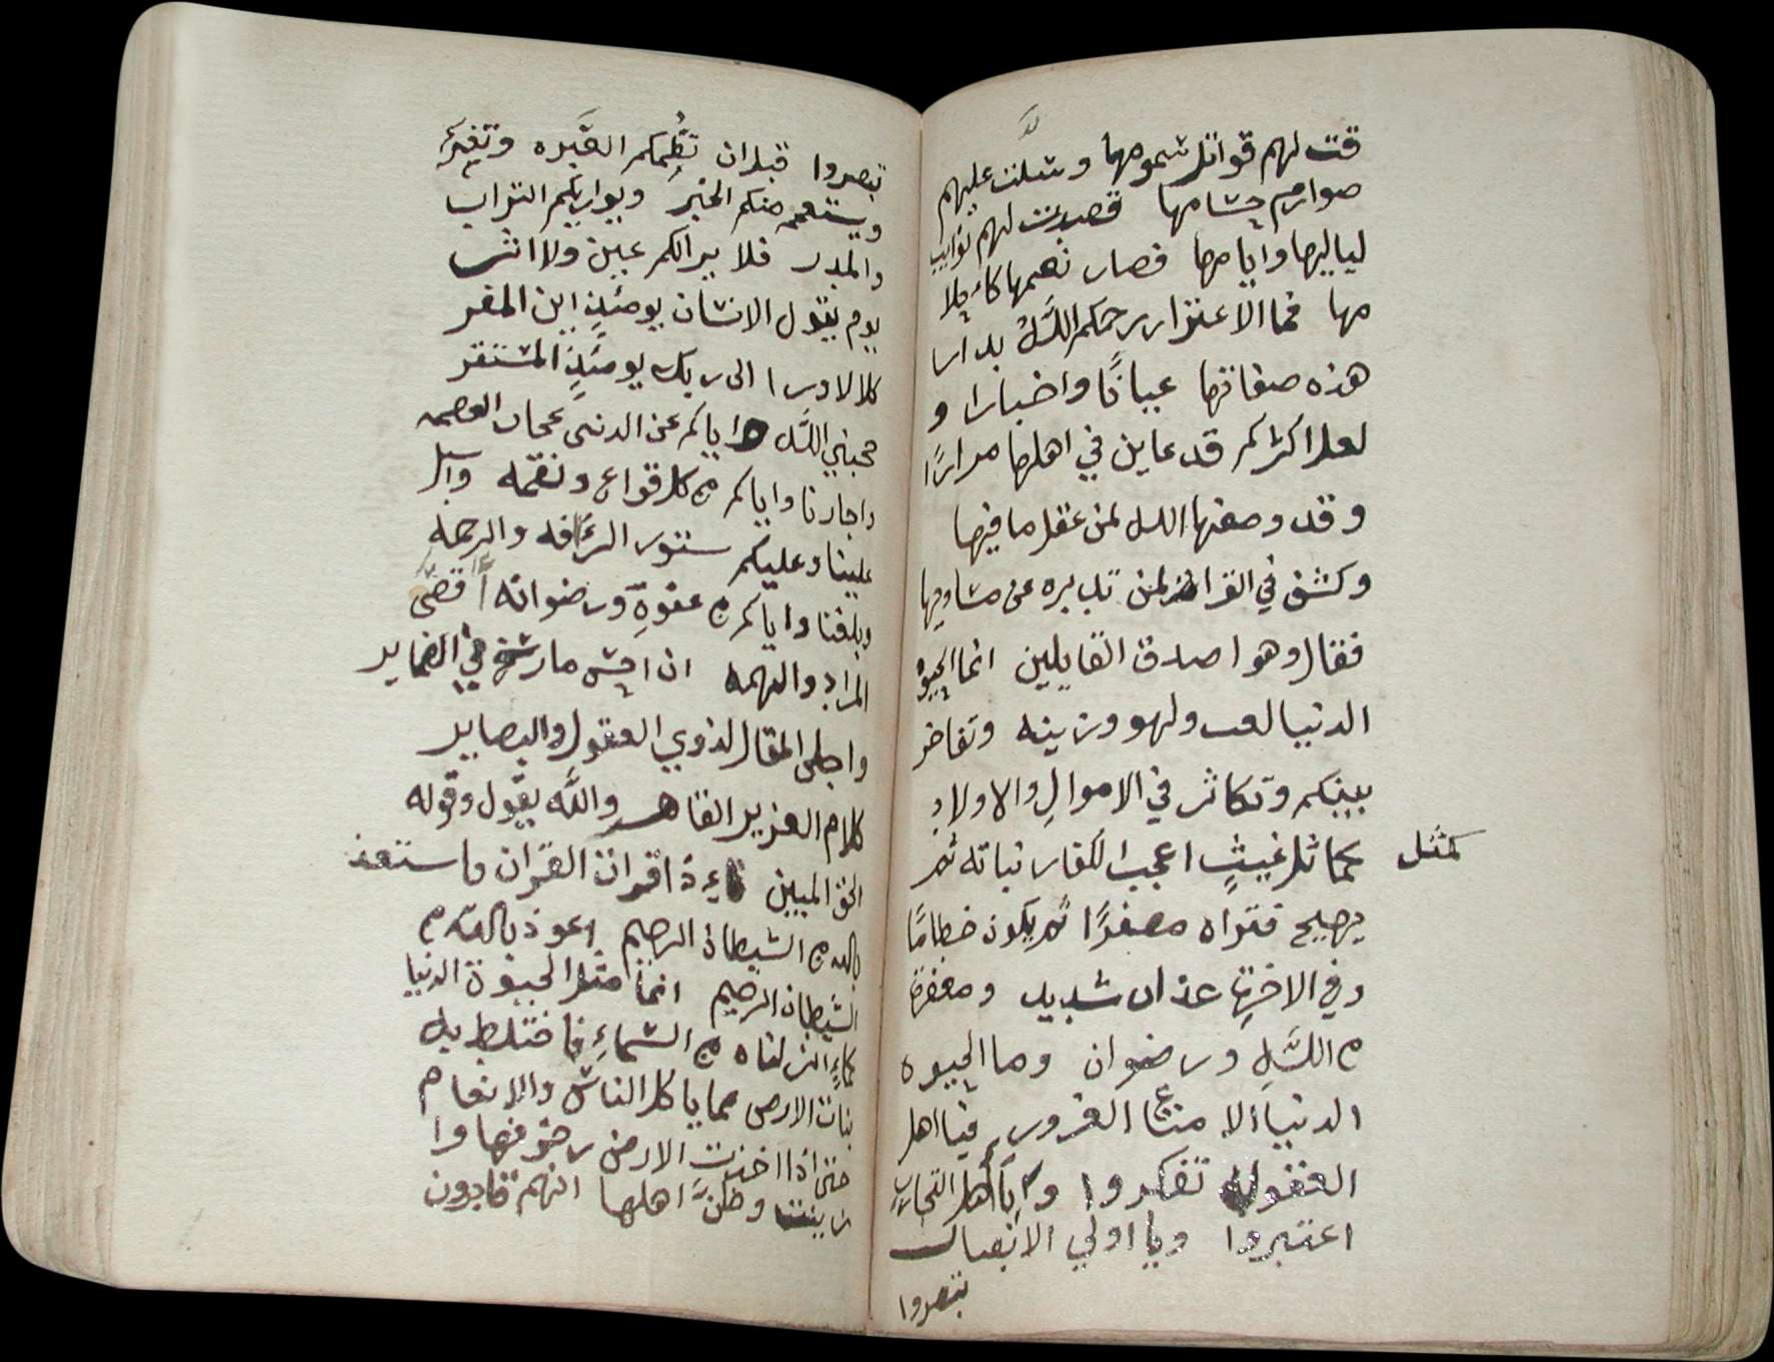 قت لهم قواتل سمومها وسلت عليهم
صوارم حسامها فصيرت لهم نوايب
لياليها وايامها فصار نعيمها كاحلا
مها فما الاغترار رحمكم اللّه بدار
هذه صفاتها عيانًا واخبارا و
لعل اكثركم قد عاين في اهلها مرارًا
وقد وصفها الله لمن عقل ما فيها
وكشف في القران لمن تدبره عن مساويها
فقال وهو اصدق القايلين انما الحيوة
الدنيا لعب ولهو وزينه وتفاخر
بينكم وتكاثر في الاموالِ والاولادِ
كمثل
كماثل غيثٍ اعجب الكفار نباته ثم
يهيج فتراه مصفرًا ثم يكون حطامًا
وفي الاخرةِ عذاب شديد ومغفرة
من اللّهِ ورضوان وما الحيوه
الدنيا الا متاع الغرور فيا اهل
العقول تفكروا ويا اهل التجارب
اعتبروا ويا اولي الابصار
تبصروا
تبصروا قبل ان تظُمكم القَبره وتغير
ويستعجم منكم الخبَر ويواريكم التراب
والمدر فلا يرا لكم عين ولا اثر
يوم يقول الانسان يومئذٍ اين المفر
كلا لا وزرا الى ربك يومئذٍ المستقر
حجبني اللّه واياكم عن الدنيى بحجاب العصمه
واجارنا واياكم من كل قواع ونقمه واسبل
علينا وعليكم ستور الرأفه والرحمه
وبلغنا واياكم من عفوهِ ورضوانه اقصى
المراد والهمه ان احسن ما رسخ في الضماير
واجلى المقال لذوي العقول والبصاير
كلام العزيز القاهر واللّه يقول وقوله
الحق المبين فاءذا قرات القران فاستعذ
بالله من الشيطان الرجيم اعوذ بالله من
الشيطان الرجيم انما مثل الحيوة الدنيا
كماءٍ انزلناه من السماءِ فاختلط به
نبات الارض مما ياكل الناس والانعام
حتى اذا اخذت الارض زخرفها وا
زينت وظنَّ اهلها انهم قادرون